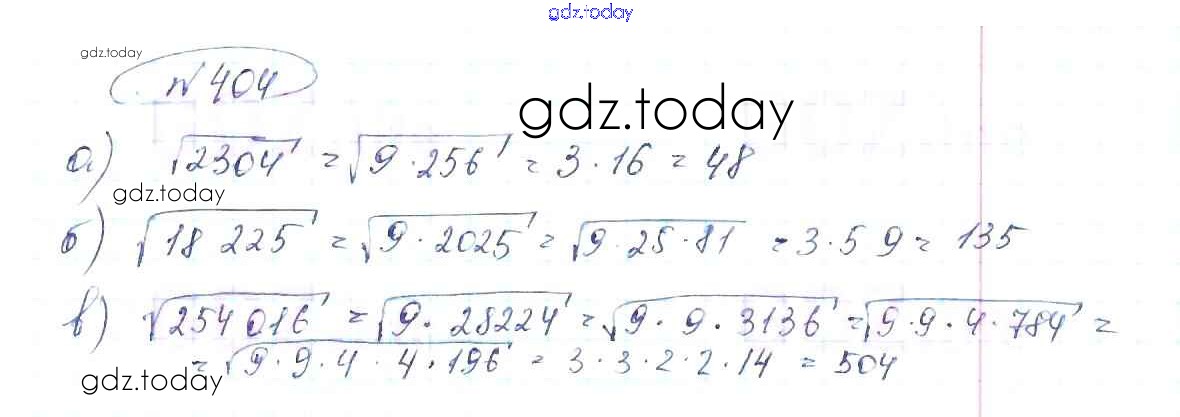 gdz.today
gdz.today
№ 404
gdz.today
а) √2304 = √9·256 = 3·16 = 48
gdz.today
б) √18 225 = √9·2025 = √9·25·81 = 3·5 9 = 135
в) √254 016 = √9·28224 = √9·9·3136 = √9·9·4·784 =
= √9·9·4·4·196 = 3·3·2·2·14 = 504
gdz.today